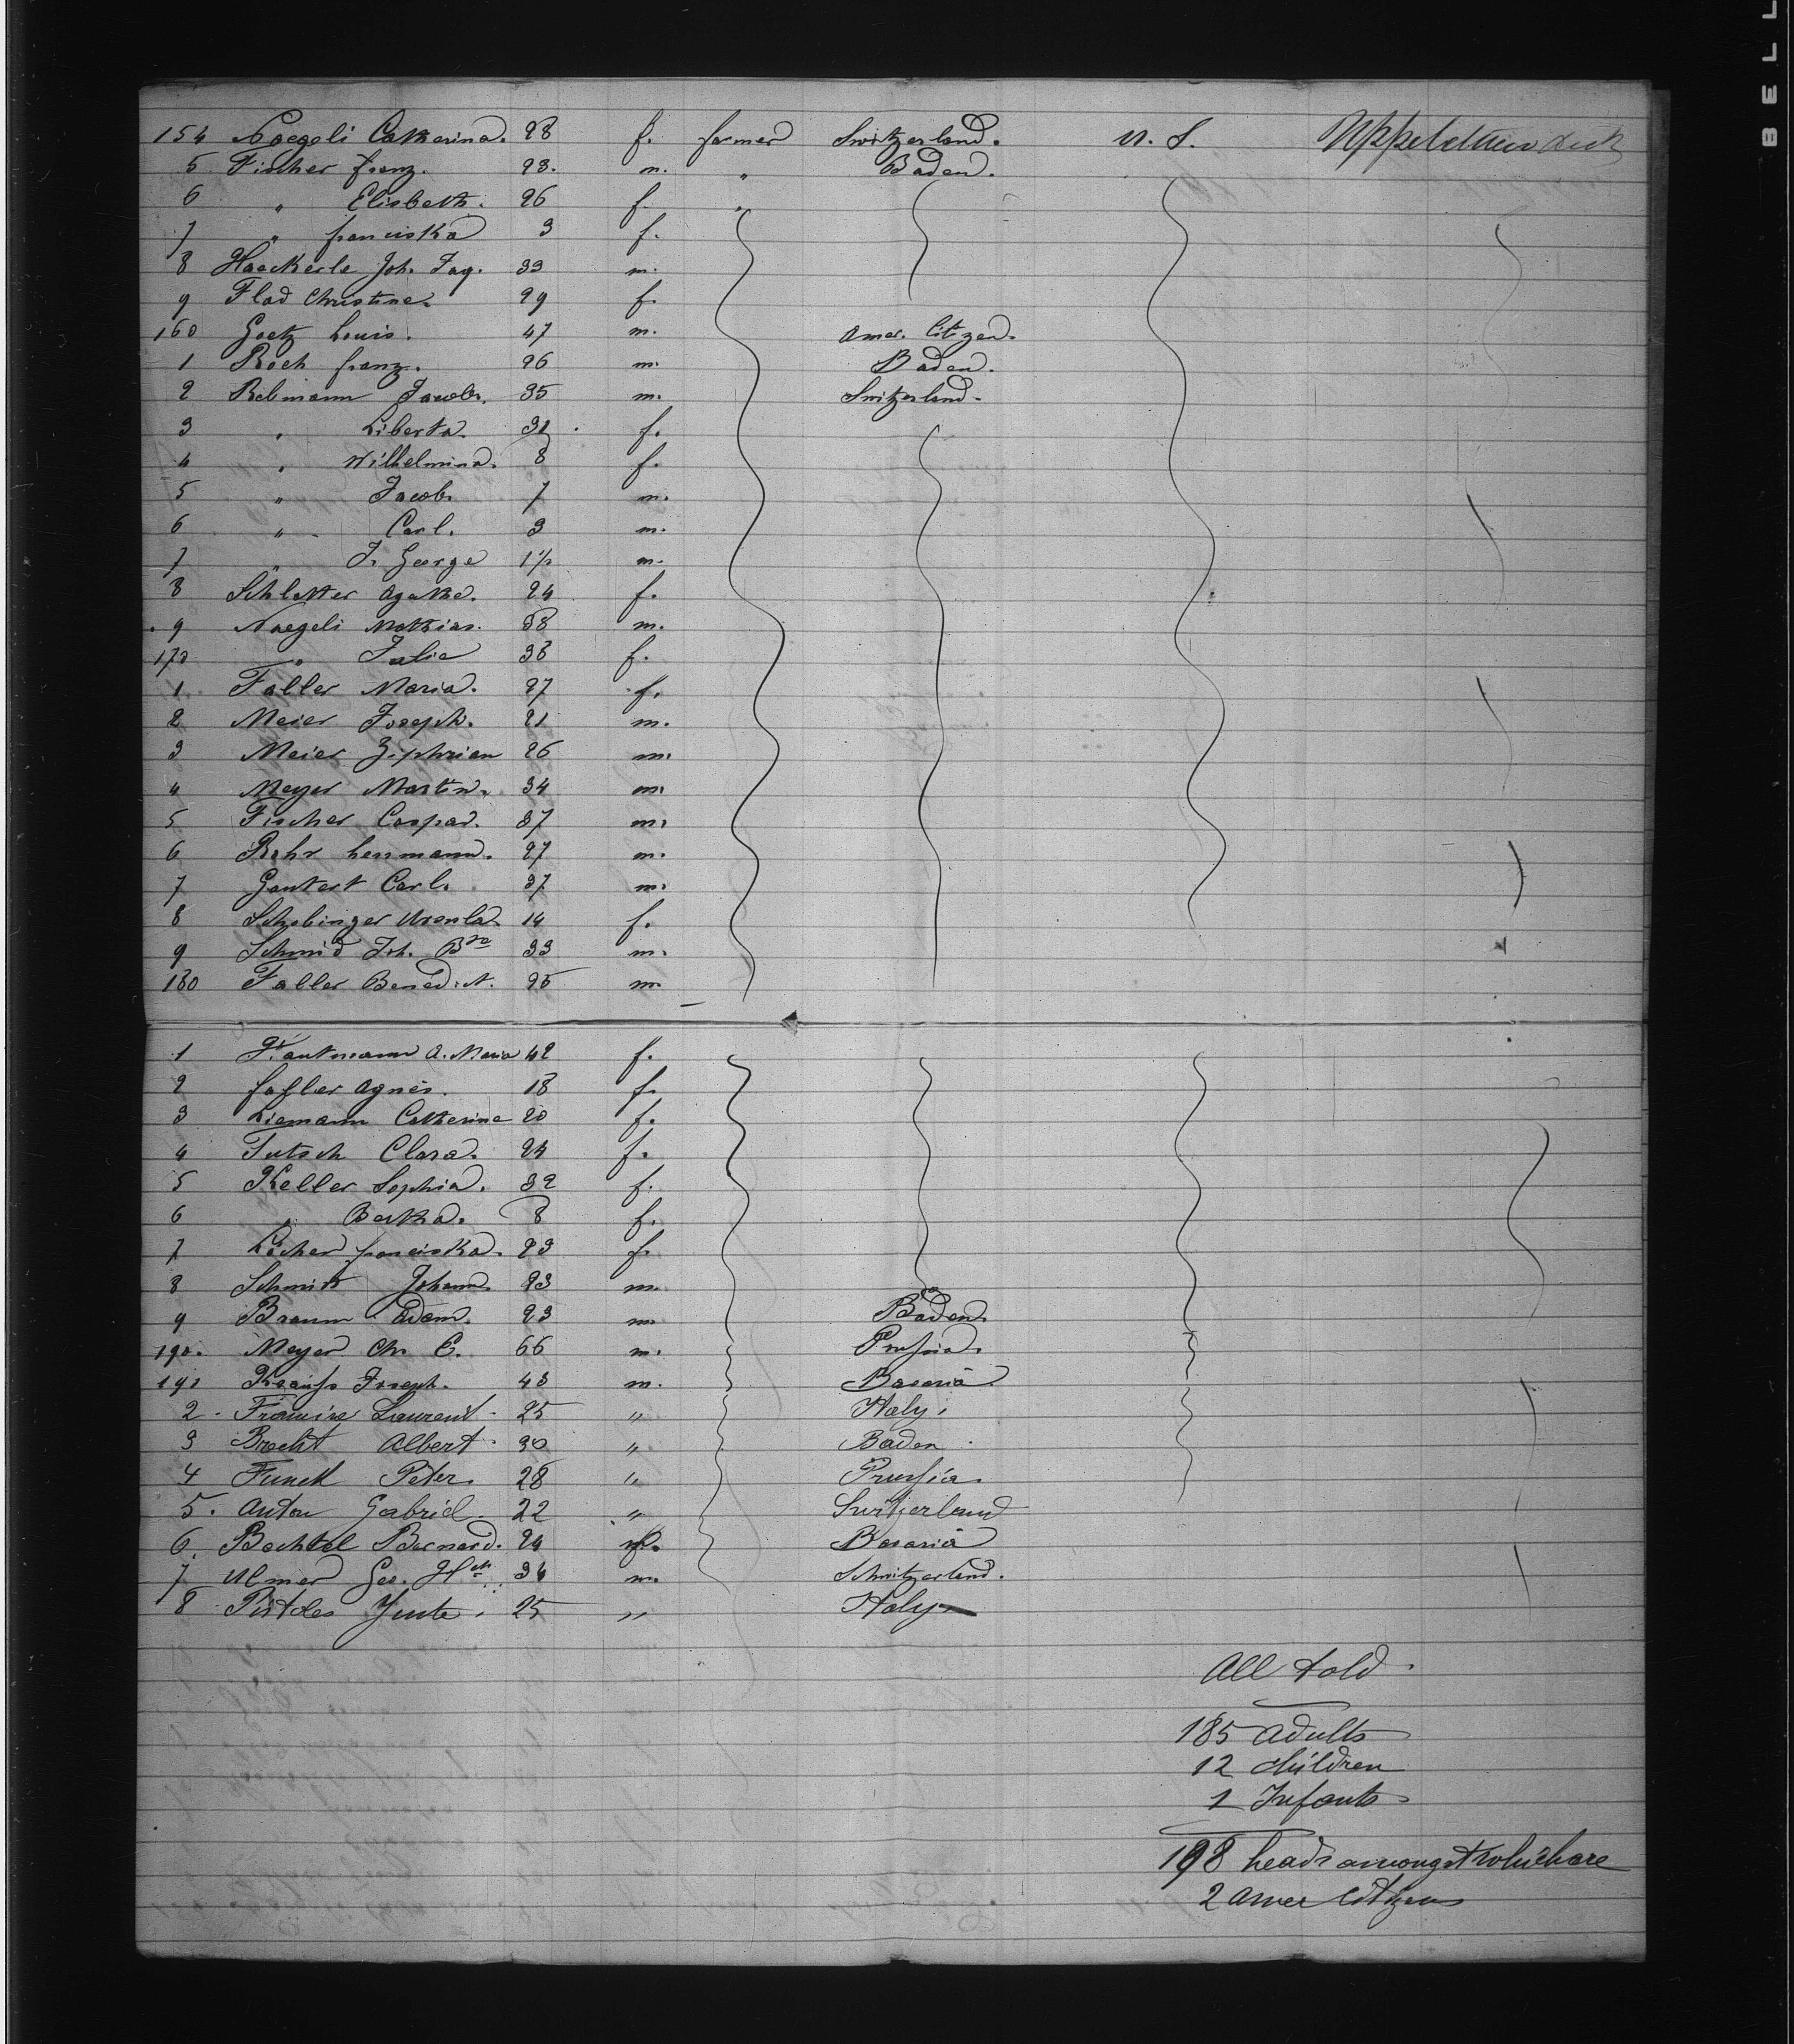 BELL
154 Naegeli Catharina. 28 f. farmer Switzerland. U. S. Upperdeck
5 Fischer franz. 28. m. " Baden.
6 " Elisbeth. 26 f. "
7 " franciska 3 f.
8 Haeckerle Joh. Jag. 33 m.
9 Flad Christine. 29 f.
160 Goetz Louis. 47 m. Amer. Citizen.
1 Roch franz. 26 m. Baden.
2 Rebmann Jacob. 35 m. Switzerland.
3 " Liberta. 31 f.
4 " Wilhelmina. 8 f.
5 " Jacob. 7 m.
6 " Carl. 3 m.
7 " J. George 1½ m.
8 Schlatter Agatha. 24 f.
9 Naegeli Mathias. 38 m.
170 " Julia 38 f.
1 Faller Maria. 27 f.
2 Meier Joseph. 21 m.
3 Meier Ziphrian 26 m.
4 Meyer Martin. 34 m.
5 Fischer Caspar. 37 m.
6 Rohr herrmann. 27 m.
7 Gantert Carl. 37 m.
8 Schobinger Ursula. 14 f.
9 Schmid Joh. Bta 33 m.
180 Faller Benedict. 25 m.
1 Trautmann A. Maria 42 f.
2 Hafler Agnes. 18 f.
3 Liemann Catherine 20 f.
4 Tutsch Clara. 24 f.
5 Keller Sophia. 32 f.
6 " Bertha. 8 f.
7 Locher franciska. 23 f.
8 Schmidt Johann. 23 m.
9 Braun Adam. 23 m. Baden.
190. Meyer Chr. C. 66 m. Prussia.
191 Krauss Joseph. 43 m. Bavaria
2 Laurent 25 " Italy.
3 Brecht Albert 30 " Baden
4 Funck Peter. 28 " Prussia.
5. Anton Gabriel. 22 " Switzerland
6. Bechtel Bernard. 24 m. Bavaria
7 Ulmer Geo. Hch. 34 m. Schwitzerland.
8 25 " Italy
All told
185 Adults
12 Children
1 Infants
198 heads amongst which are
2 Amer Citizens